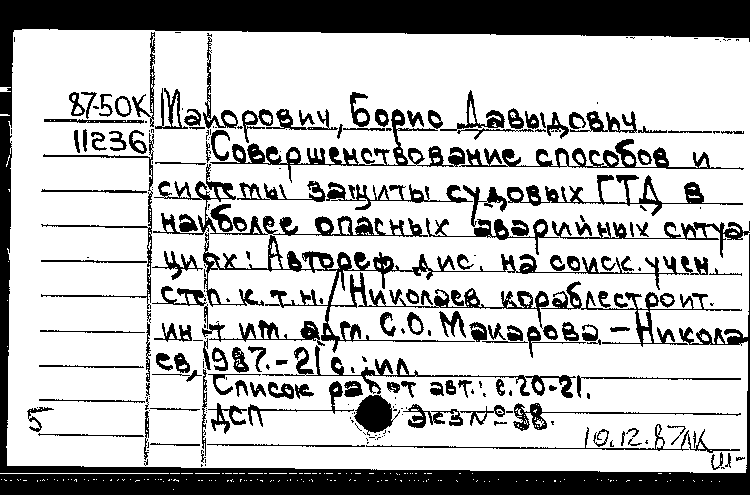 87-50К Майорович, Борис Давыдович.
11236 Совершенствование способов и
системы защиты судовых ГТД в
наиболее опасных аварийных ситуа-
циях: Автореф. дис. на соиск. учен.
степ. к.т.н. / Николаев. кораблестроит.
ин-т им. адм. С.О. Макарова - Никола-
ев, 1987. - 21 с.: ил.
Список работ авт.: с. 20-21.
ДСП Экз № 98.
5
10.12.87 ЛК
Ш-